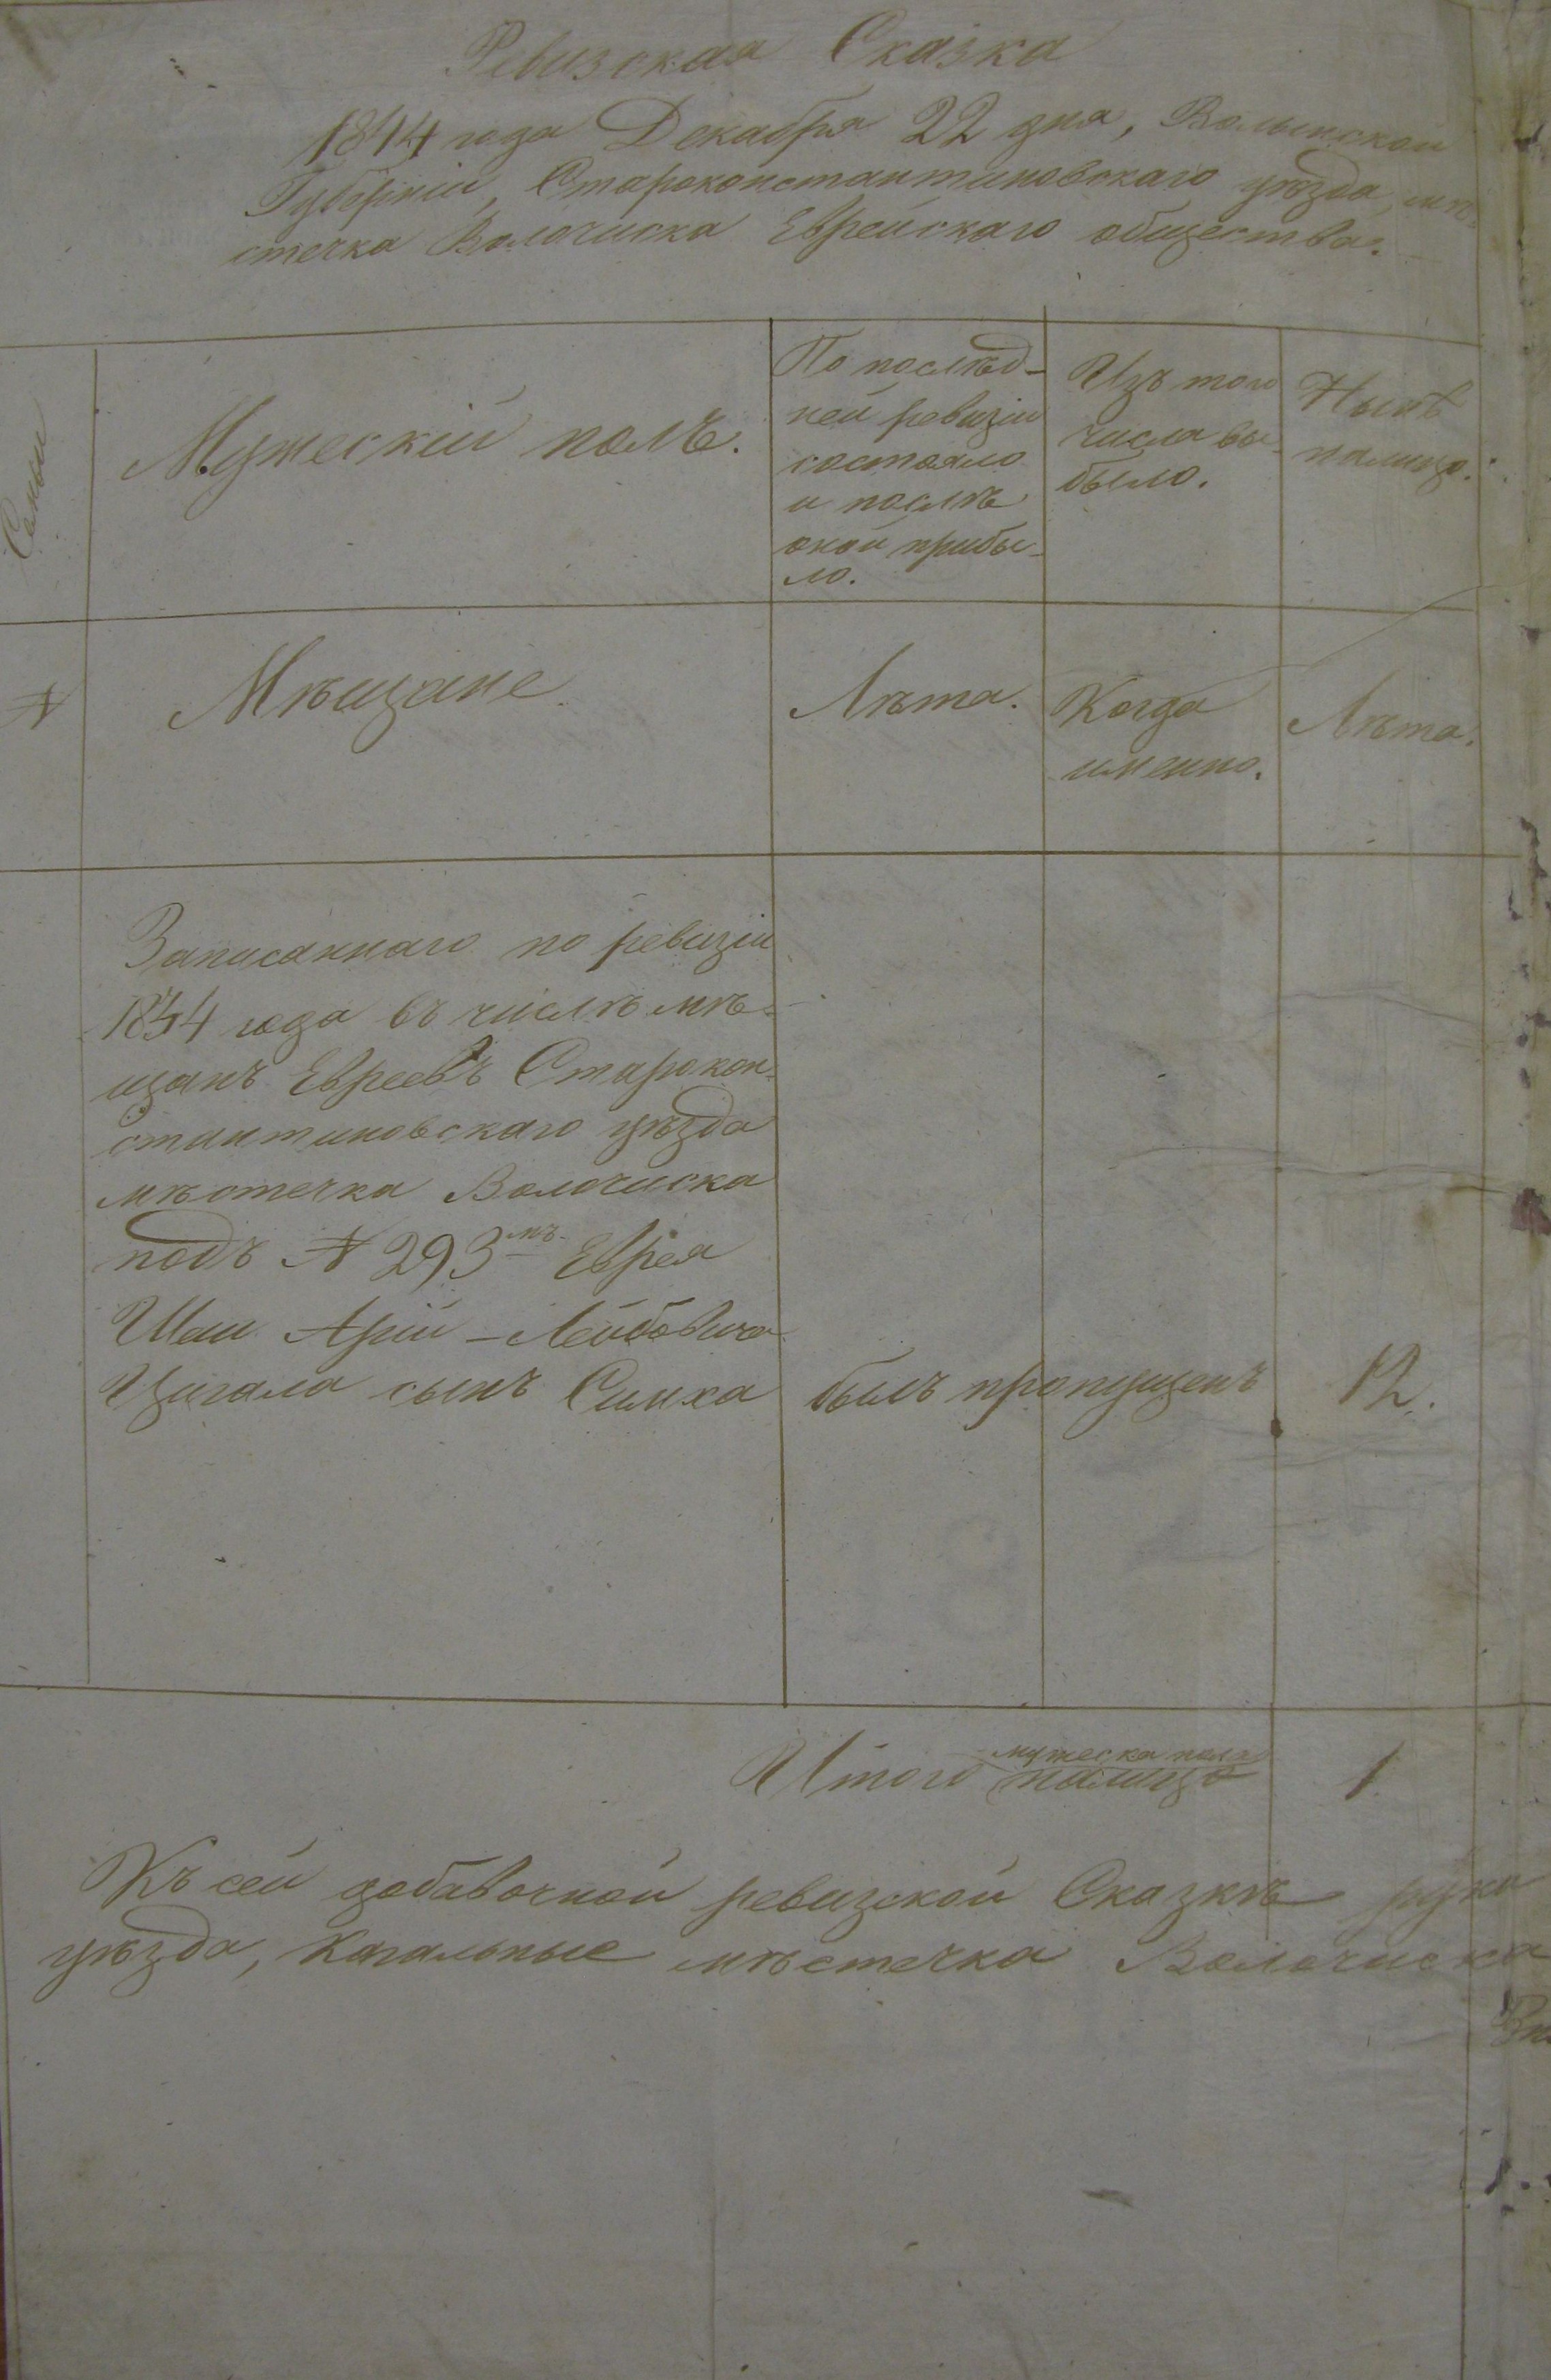 Ревизская Сказка
1844 года Декабря 22 дня, Волынской
Губерніи, Староконстантиновскаго уѣзда, мѣ-
стечка Волочиска Еврейскаго общества.
Семьи
Мужескій полъ.
По послѣд-
ней ревизіи
состояло
и послѣ
оной прибы-
ло.
Изъ того
числа вы-
было.
Нынѣ
налицо.
№
Мѣщане.
Лѣта.
Когда
именно.
Лѣта.
Записаннаго по ревизіи
1834 года въ числѣ мѣ-
щанъ Евреевъ Старокон-
стантиновскаго уѣзда
мѣстечка Волочиска
подъ № 293мъ Еврея
Шаи Арій-Лейбовича
Цигала сынъ Симха былъ пропущенъ 12.
Итого мужеска пола налицо 1
Къ сей добавочной ревизской Сказкѣ руки
уѣзда, Кагальные мѣстечка Волочиска